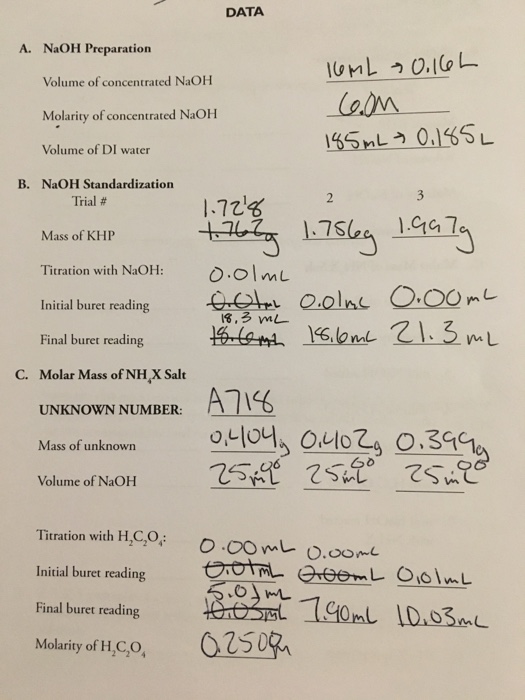 DATA
A. NaOH Preparation
Volume of concentrated NaOH 16mL → 0.16L
Molarity of concentrated NaOH 6.0M
Volume of DI water 185mL → 0.185L
B. NaOH Standardization
Trial # 1 2 3
1.728
Mass of KHP 1.762g 1.756g 1.997g
Titration with NaOH: 0.01mL
Initial buret reading 0.01mL 0.01mL 0.00mL
18.3 mL
Final buret reading 18.6mL 18.6mL 21.3mL
C. Molar Mass of NH₄X Salt
UNKNOWN NUMBER: A718
Mass of unknown 0.404g 0.402g 0.399g
Volume of NaOH 25.00mL 25.00mL 25.00mL
Titration with H₂C₂O₄: 0.00mL 0.00mL
Initial buret reading 0.01mL 0.00mL 0.01mL
Final buret reading 10.03mL 7.90mL 10.03mL
Molarity of H₂C₂O₄